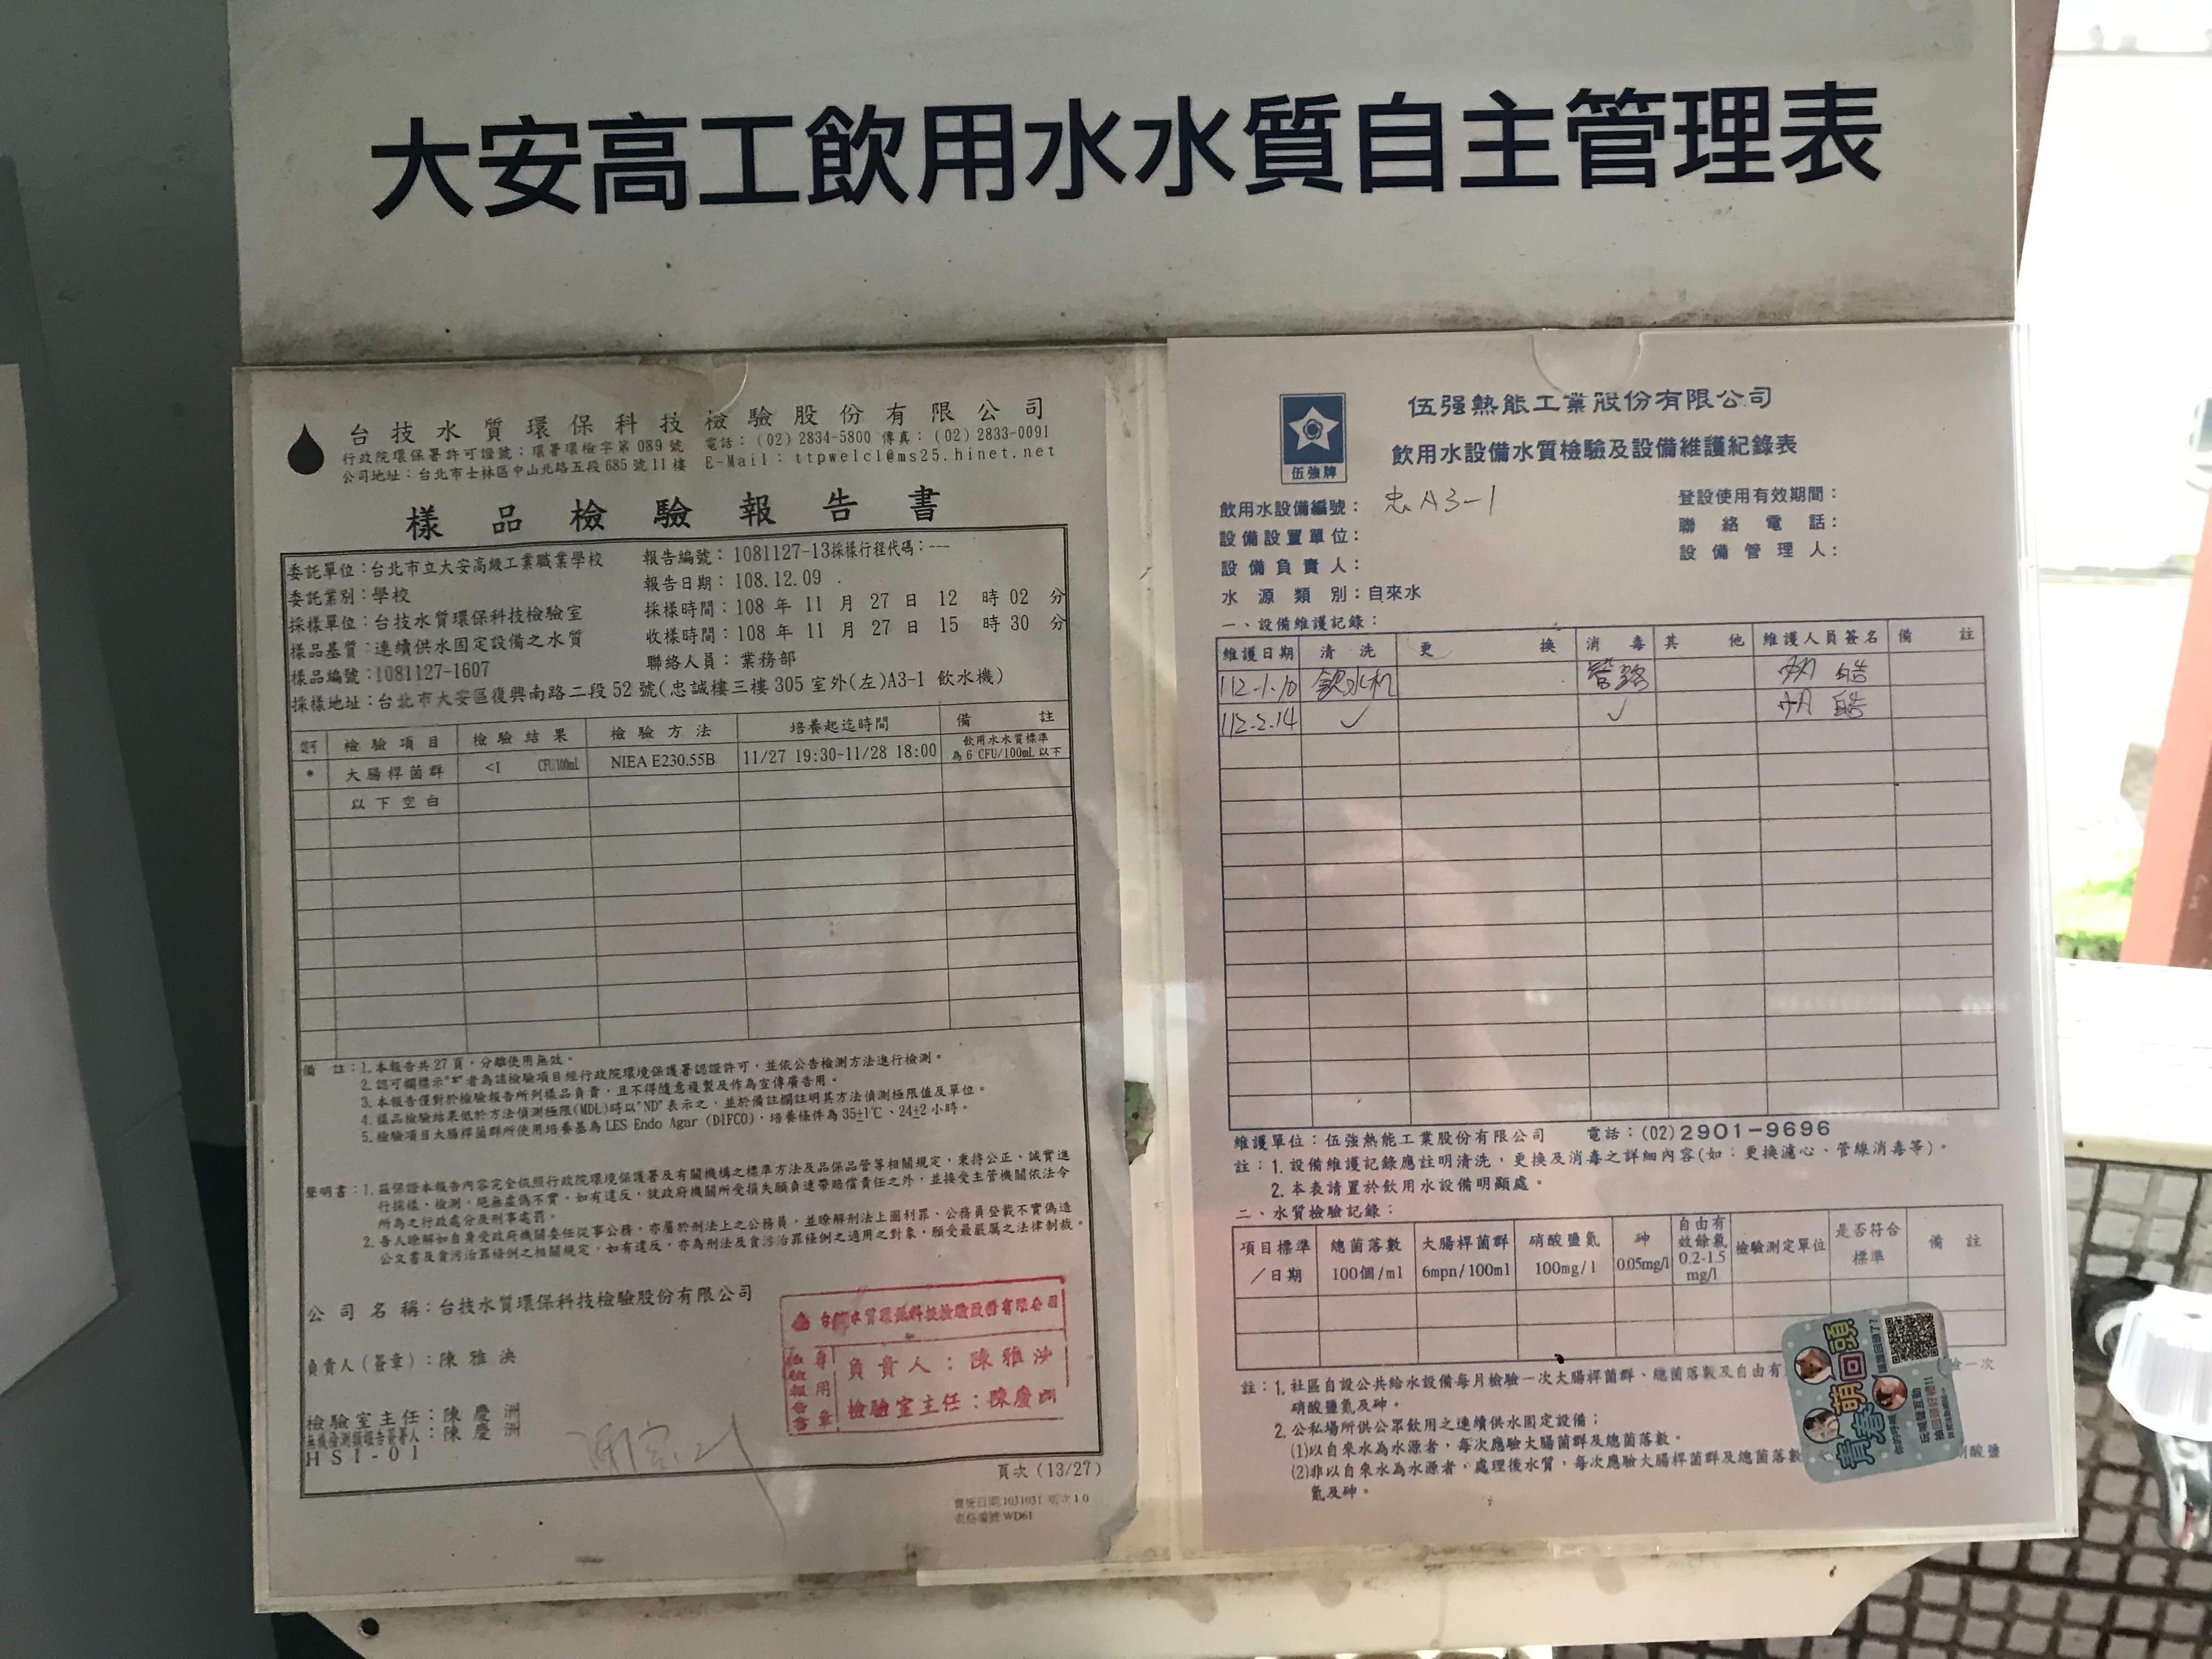 大安高工飲用水水質自主管理表
台技水質環保科技檢驗股份有限公司
行政院環保署許可證號：環署環檢字第089號 電話：(02)2834-5800 傳真：(02)2833-0091
公司地址：台北市士林區中山北路五段685號11樓 E-Mail：ttpwelcl@ms25.hinet.net
樣品檢驗報告書
委託單位：台北市立大安高級工業職業學校 報告編號：1081127-13採樣行程代碼：---
委託業別：學校 報告日期：108.12.09
採樣單位：台技水質環保科技檢驗室 採樣時間：108年11月27日12時02分
樣品基質：連續供水固定設備之水質 收樣時間：108年11月27日15時30分
樣品編號：1081127-1607 聯絡人員：業務部
採樣地址：台北市大安區復興南路二段52號(忠誠樓三樓305室外(左)A3-1 飲水機)
認可 檢驗項目 檢驗結果 檢驗方法 培養起迄時間 備註
* 大腸桿菌群 <1 CFU/100mL NIEA E230.55B 11/27 19:30~11/28 18:00 飲用水水質標準
為6 CFU/100mL以下
以下空白
備 註：1.本報告共27頁，分離使用無效。
2.認可欄標示"*"者為該檢驗項目經行政院環境保護署認證許可，並依公告檢測方法進行檢測。
3.本報告僅對於檢驗報告所列樣品負責，且不得隨意複製及作為宣傳廣告用。
4.樣品檢驗結果低於方法偵測極限(MDL)時以"ND"表示之，並於備註欄註明其方法偵測極限值及單位。
5.檢驗項目大腸桿菌群所使用培養基為LES Endo Agar (DIFCO)，培養條件為35±1℃、24±2小時。
聲明書：1.茲保證本報告內容完全依照行政院環境保護署及有關機構之標準方法及品保品管等相關規定，秉持公正、誠實進
行採樣、檢測，絕無虛偽不實，如有違反，就政府機關所受損失願負連帶賠償責任之外，並接受主管機關依法令
所為之行政處分及刑事處罰。
2.吾人瞭解如自身受政府機關委任從事公務，亦屬於刑法上之公務員，並瞭解刑法上圖利罪、公務員登載不實偽造
公文書及貪污治罪條例之相關規定，如有違反，亦為刑法及貪污治罪條例之適用之對象，願受最嚴厲之法律制裁。
公司名稱：台技水質環保科技檢驗股份有限公司
負責人(簽章)：陳雅泱
檢驗室主任：陳慶洲
無機檢測類報告簽署人：陳慶洲
HSI-01
台技水質環保科技檢驗股份有限公司
檢驗報告專用章
負責人：陳雅泱
檢驗室主任：陳慶洲
頁次(13/27)
實施日期:1031031 版次1.0
表格編號:WD61
伍強牌
伍强熱能工業股份有限公司
飲用水設備水質檢驗及設備維護紀錄表
飲用水設備編號：忠A3-1 登設使用有效期間：
設備設置單位： 聯絡電話：
設備負責人： 設備管理人：
水源類別：自來水
一、設備維護記錄：
維護日期 清洗 更換 消毒 其他 維護人員簽名 備註
112-1-10 飲水机 管路
112-2-14 ✓ ✓
維護單位：伍強熱能工業股份有限公司 電話：(02)2901-9696
註：1.設備維護記錄應註明清洗，更換及消毒之詳細內容(如：更換濾心、管線消毒等)。
2.本表請置於飲用水設備明顯處。
二、水質檢驗記錄：
項目標準／日期 總菌落數100個/ml 大腸桿菌群6mpn/100ml 硝酸鹽氮100mg/l 砷0.05mg/l 自由有效餘氯0.2-1.5mg/l 檢驗測定單位 是否符合標準 備註
註：1.社區自設公共給水設備每月檢驗一次大腸桿菌群、總菌落數及自由有 一次
硝酸鹽氮及砷。
2.公私場所供公眾飲用之連續供水固定設備；
(1)以自來水為水源者，每次應驗大腸菌群及總菌落數。
(2)非以自來水為水源者，處理後水質，每次應驗大腸桿菌群及總菌落數 硝酸鹽
氮及砷。
青春萌回頭